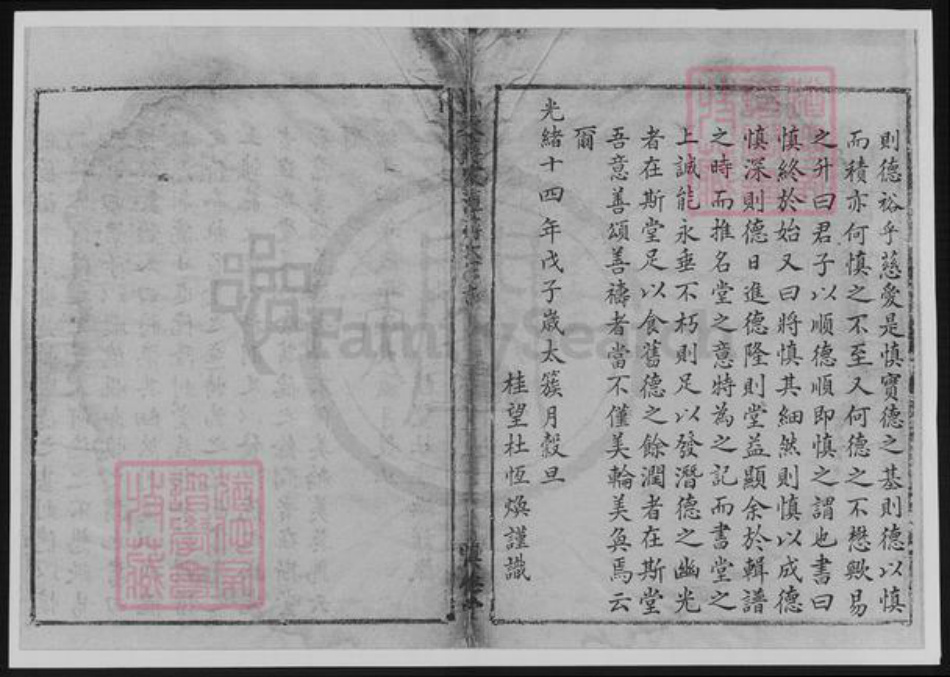 則德裕乎慈愛是慎寶德之基則德以慎
而積亦何慎之不至又何德之不懋歟易
之升曰君子以順德順即慎之謂也書曰
慎終於始又曰將慎其細然則慎以成德
慎深則德日進德隆則堂益顯余於輯譜
之時而推名堂之意特為之記而書堂之
上誠能永垂不朽則足以發潛德之幽光
者在斯堂足以食舊德之餘潤者在斯堂
吾意善頌善禱者當不僅美輪美奐焉云
爾
光緒十四年戊子歲太簇月穀旦
桂望杜恆煥謹識
FamilySearch